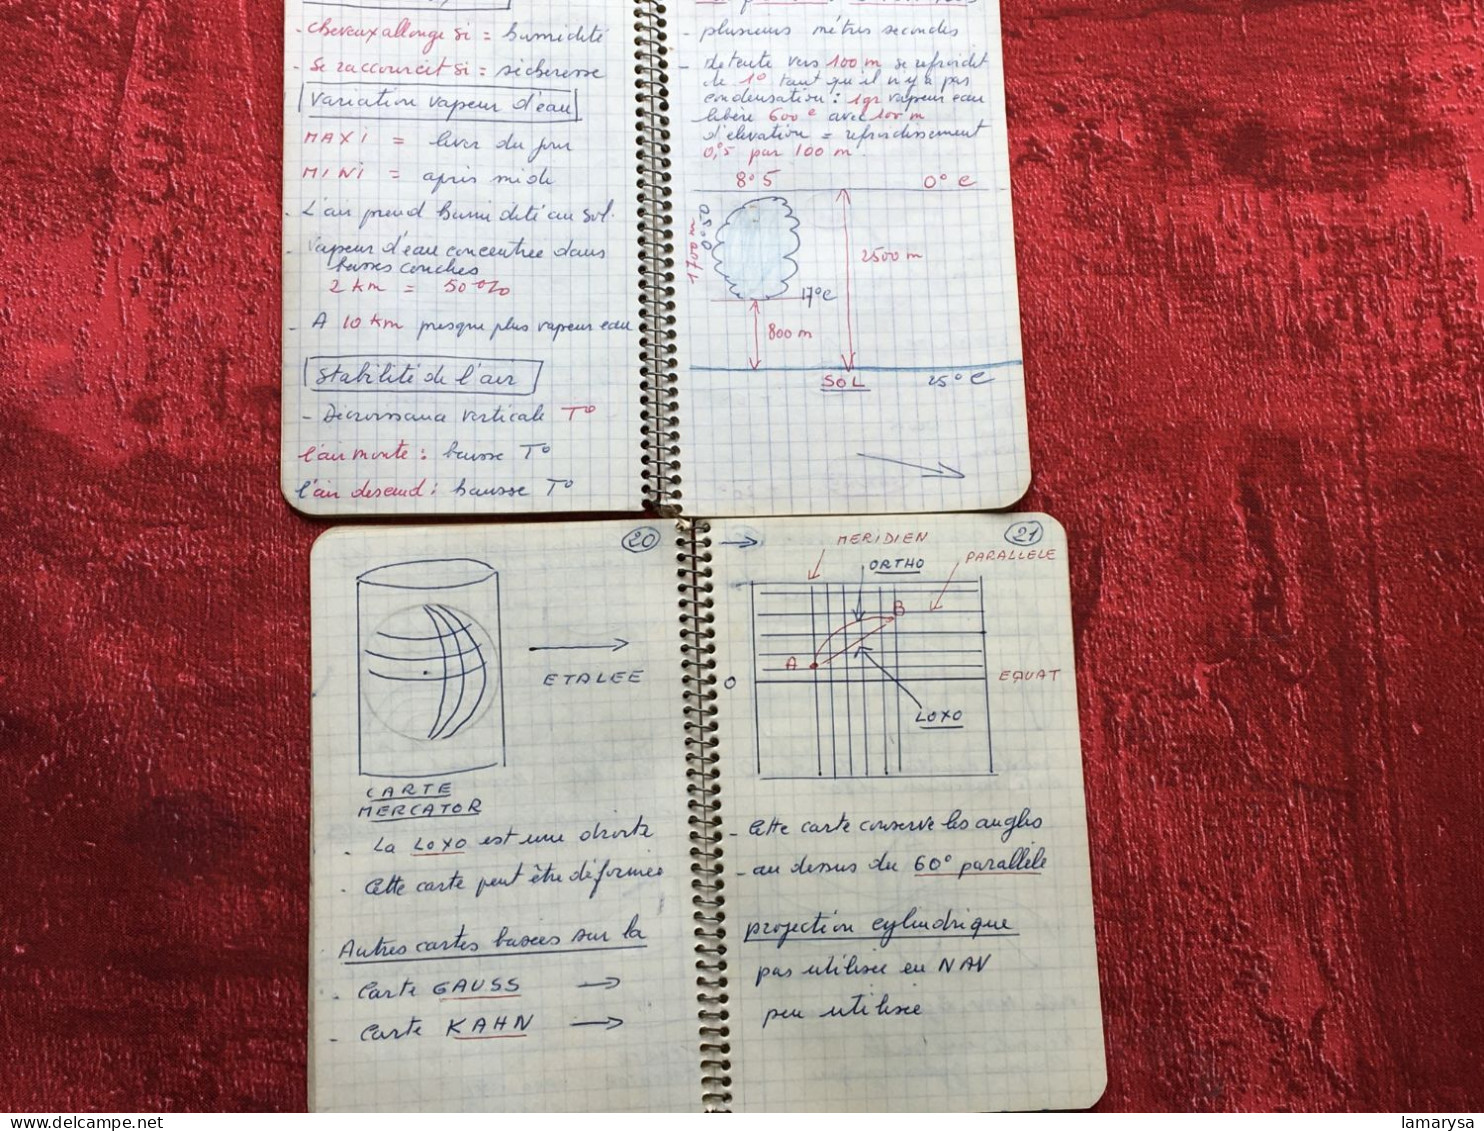 - cheveux allonge si = humidité
- Se raccourcit si = sécheresse
Variation vapeur d'eau
MAXI = lever du jour
MINI = après midi
- L'air prend humidité au sol.
- Vapeur d'eau concentrée dans
basses couches
2 km = 50 %
- A 10 km presque plus vapeur eau
Stabilité de l'air
- Décroissance verticale T°
l'air monte : baisse T°
l'air descend : hausse T°
- plusieurs mètres secondes
- detente vers 100 m se refroidit
de 1° tant qu'il n'y a pas
condensation : 1gr vapeur eau
libère 600 c avec 100 m
d'élévation = refroidissement
0,°5 par 100 m.
8°5
0°C
1700 m
0°50
2500 m
17°C
800 m
SOL
25°C
20
ETALEE
CARTE
MERCATOR
- La LOXO est une droite
- Cette carte peut être déformée
Autres cartes basées sur la
- Carte GAUSS →
- Carte KAHN →
21
MERIDIEN
ORTHO
PARALLELE
B
A
O
EQUAT
LOXO
- Cette carte conserve les angles
- au dessus du 60° parallèle
projection cylindrique
pas utilisée en NAV
peu utilisée
lamarysa